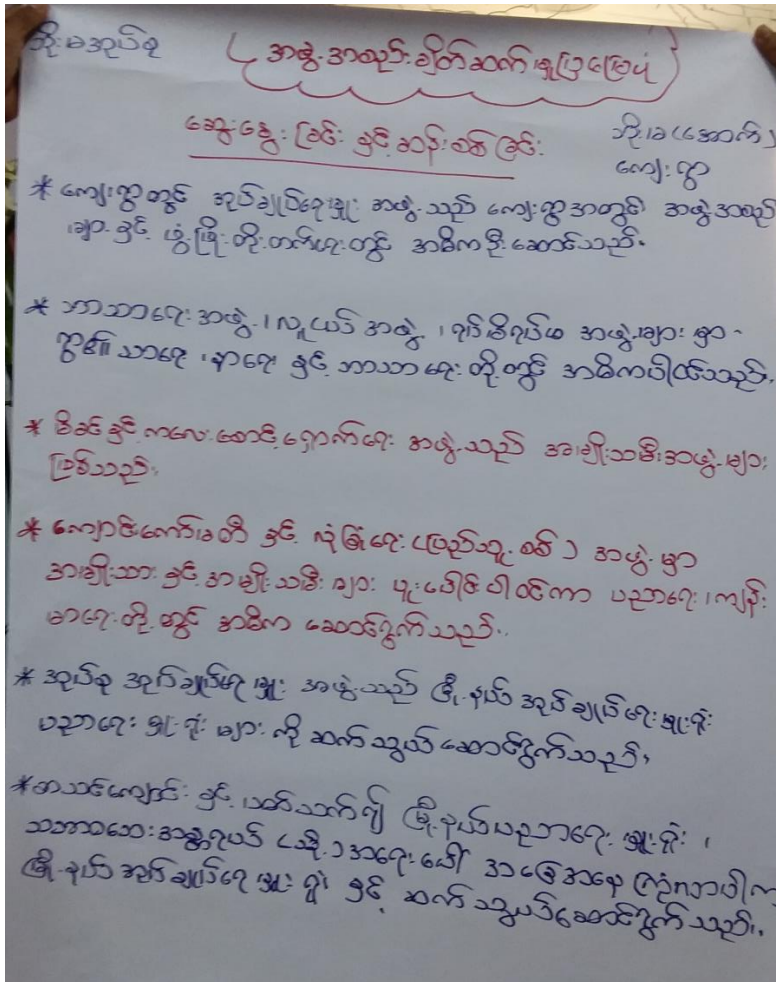 ဘိုးမအုပ်စု
( အဖွဲ့အစည်းချိတ်ဆက်မှုပြမြေပုံ )
ဆွေးနွေးခြင်း နှင့် ဆန်းစစ်ခြင်း
(အောက်)
ကျေးရွာ
* ကျေးရွာတွင် အုပ်ချုပ်ရေးမှူး အဖွဲ့သည် ကျေးရွာအတွင်း အဖွဲ့အစည်း
များ နှင့် ဖွံ့ဖြိုးတိုးတက်ရေးတွင် အဓိကဦးဆောင်သည်။
* ဘာသာရေးအဖွဲ့၊ လူငယ်အဖွဲ့၊ ရပ်မိရပ်ဖ အဖွဲ့များ မှာ
ရွာ၏ သာရေး၊ နာရေး နှင့် ဘာသာရေးတို့တွင် အဓိကပါဝင်သည်။
* မိခင်နှင့်ကလေးစောင့်ရှောက်ရေး အဖွဲ့သည် အမျိုးသမီးအဖွဲ့များ
ဖြစ်သည်။
* ကျောင်းကော်မတီ နှင့် လုံခြုံရေး (ပြည်သူ့စစ်) အဖွဲ့မှာ
အမျိုးသား နှင့် အမျိုးသမီးများ ပူးပေါင်းပါဝင်ကာ ပညာရေး၊ ကျန်း
မာရေးတို့တွင် အဓိက ဆောင်ရွက်သည်။
* အုပ်စု အုပ်ချုပ်ရေးမှူး အဖွဲ့သည် မြို့နယ် အုပ်ချုပ်ရေးမှူးရုံး
ပညာရေးမှူးရုံး များကို ဆက်သွယ်ဆောင်ရွက်သည်။
* စာသင်ကျောင်း နှင့် ပတ်သက်၍ မြို့နယ်ပညာရေးမှူးရုံး၊
သဘာဝဘေးအန္တရာယ် (သို့) အရေးပေါ် အခြေအနေ ကြုံလာပါက
မြို့နယ် အုပ်ချုပ်ရေးမှူးရုံး နှင့် ဆက်သွယ်ဆောင်ရွက်သည်။